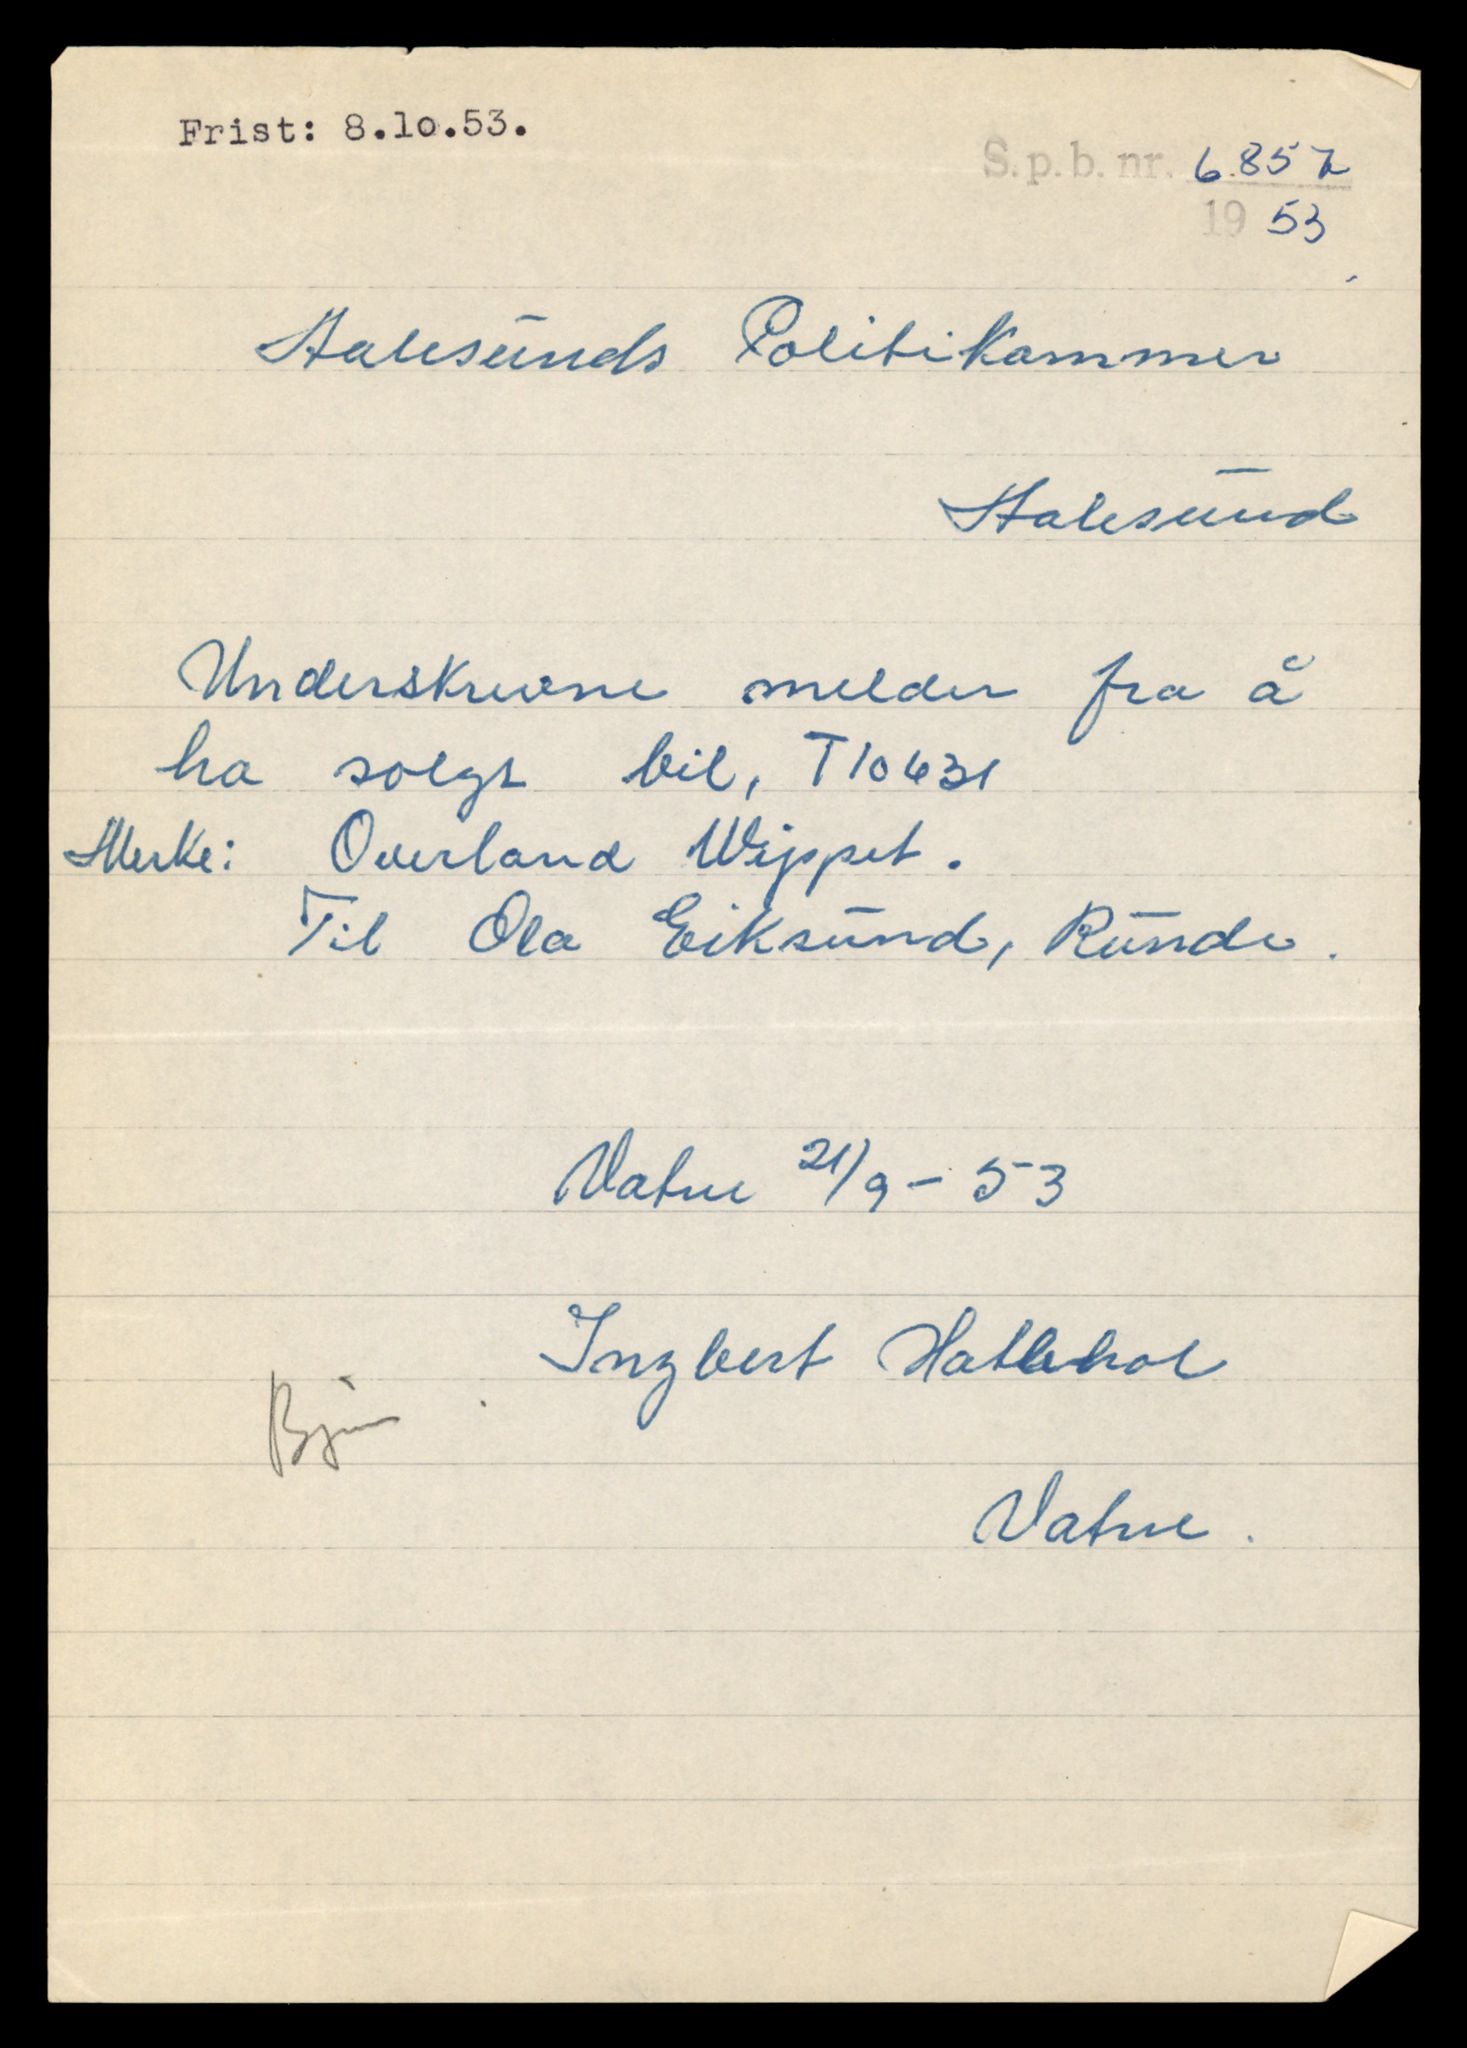 Frist: 8.10.53.
S.p.b. nr. 6.857
19 53
Aalesunds Politikammer
Aalesund
Underskrevne melder fra å
ha solgt bil, T10631
Merke: Overland Wippet.
Til Ola Eiksund, Runde.
Vatne 21/9 - 53
Ingbert Hatlehol
Vatne.